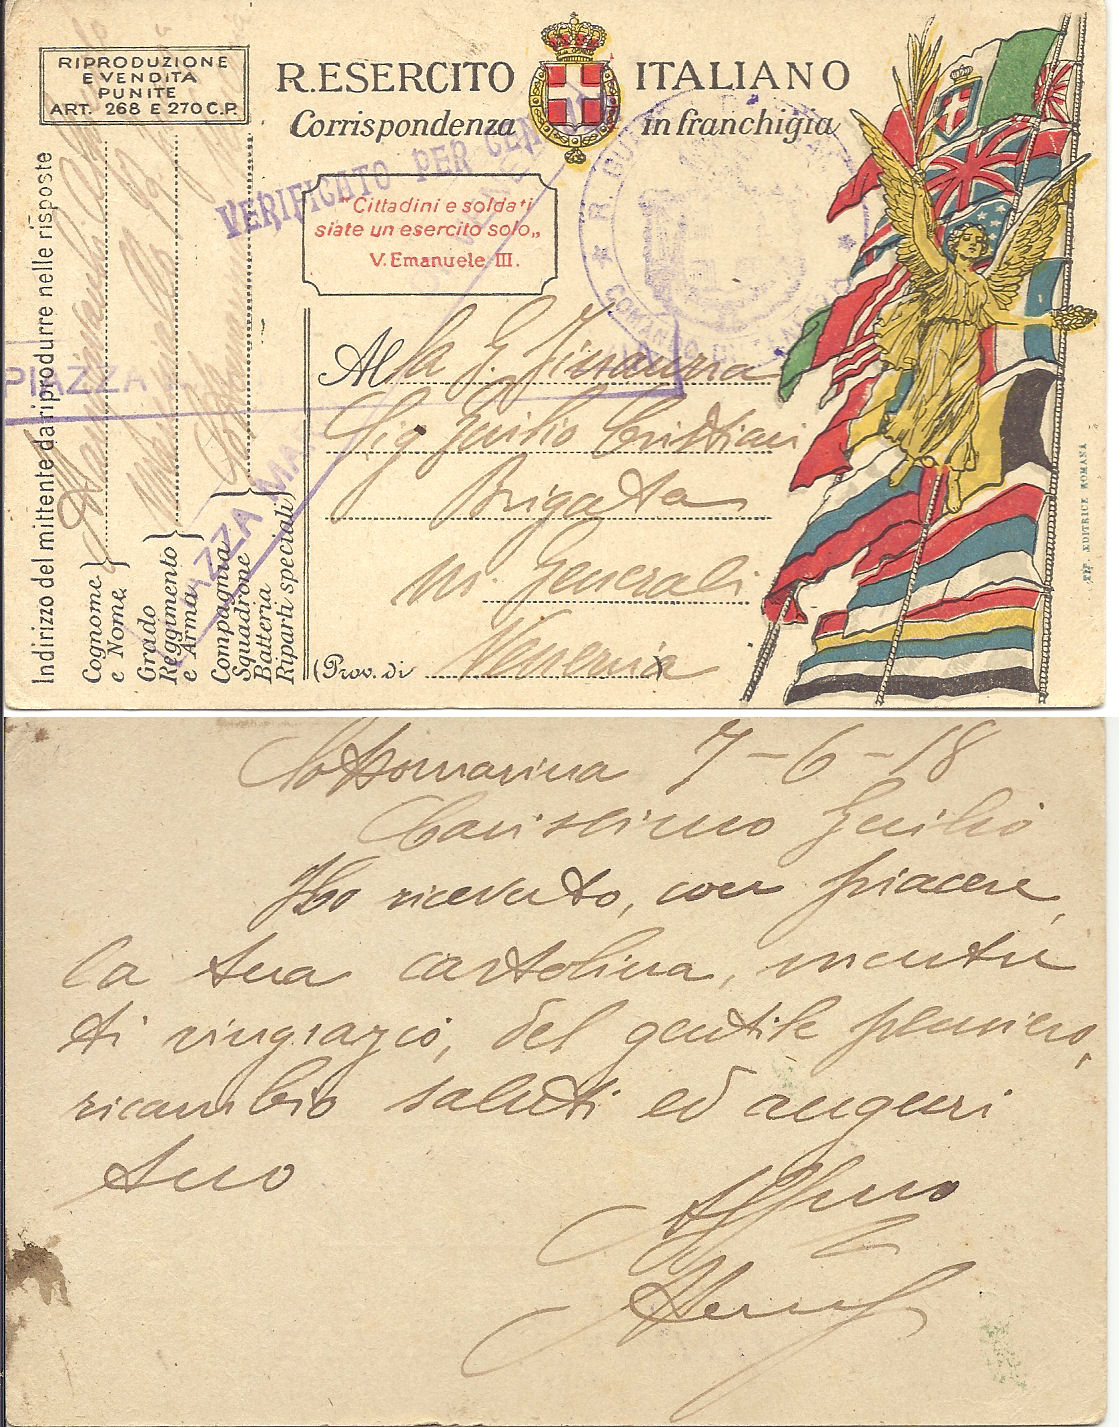 RIPRODUZIONE
E VENDITA
PUNITE
ART. 268 E 270 C.P.
R. ESERCITO ITALIANO
Corrispondenza in franchigia
VERIFICATO PER CEN
"Cittadini e soldati
siate un esercito solo„
V. Emanuele III.
★ R. GUA
COMANDO DI
★
PIAZZA
PIAZZA MA
Indirizzo del mittente da riprodurre nelle risposte
Cognome
e Nome
Grado
Reggimento
e Arma
Compagnia
Squadrone
Batteria
Riparti speciali)
Alla G. Finanza
Sig. Guilio Cristiani
Brigata
Generali
(Prov. di Venezia
TIP. EDITRICE ROMANA
Sottomarina 7-6-18
Carissimo Guilio
Ho ricevuto, con piacere,
la tua cartolina, mentre
ti ringrazio, del gentile pensiero,
ricambio saluti ed auguri
tuo
Aff.mo